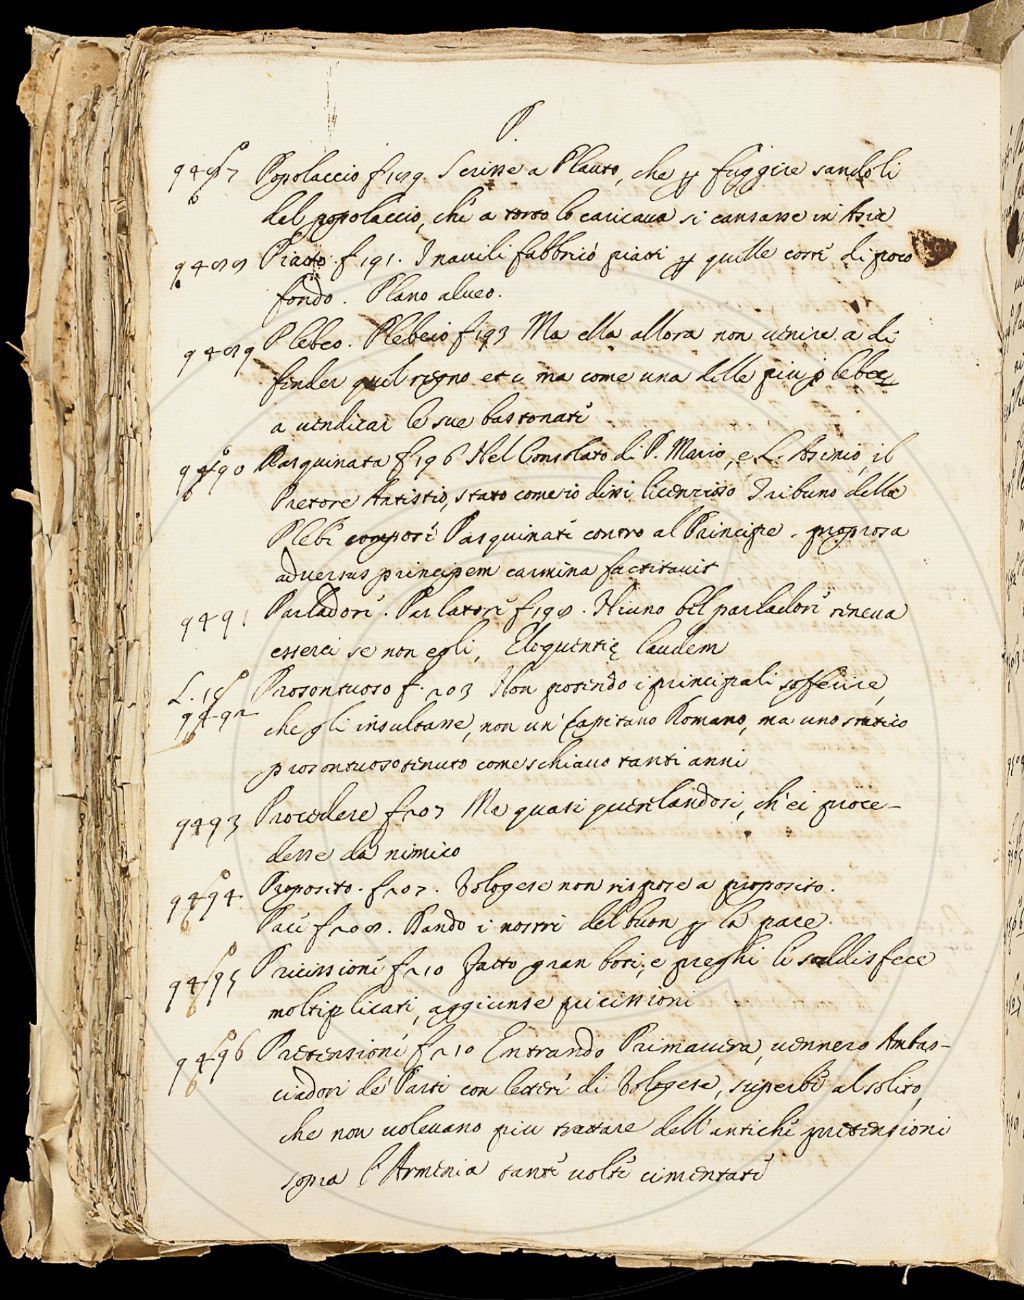 P
9487 Popolaccio f 189. Scrisse a Plauto, che p fuggire sandoli
del popolaccio, che a torto lo caricava si cansasse in Asia
9488 Piatto. f 191. I navili fabbricò piatti p quille coste di poco
fondo. Plano alveo.
9489 Plebeo. Plebeio f 193 Ma ella allora non venire a di
fender quel regno et c ma come una delle piu plebee
a vendicar le sue bastonate
9490 Pasquinata f 196 Nel Consolato di P. Mario, e L. Asinio, il
Pretore Antistio, stato come io dissi licenzioso Tribuno della
Plebe compose Pasquinate contro al Principe. probrosa
adversus principem carmina factitavit
9491 Parladori. Parlatori f 198. Niuno bel parladore rineva
esserci se non egli, Eloquentię laudem
L. 15
9492 Prosontuoso f. 203 Non potendo i principali sofferire,
che gli insultasse, non un Capitano Romano, ma uno statico
prosontuoso tenuto come schiavo tanti anni
9493 Procedere f 207 Ma quasi querelandosi, ch'ei proce-
desse da nimico
9494 Proposito. f 207. Vologese non rispose a proposito.
Pace f 208. Dando i nostri del buon p la pace.
9495 Pricissioni f 210 Fatto gran boti, e preghi li soddisfece
moltiplicati, aggiunse pricissioni
9496 Pretensioni f 210 Entrando Primavera, vennero Ambas-
ciadori de' Parti con lettere di Vologese, superbe al solito,
che non volevano piu trattare dell' antiche pretensioni
sopra l'Armenia tante volte cimentate